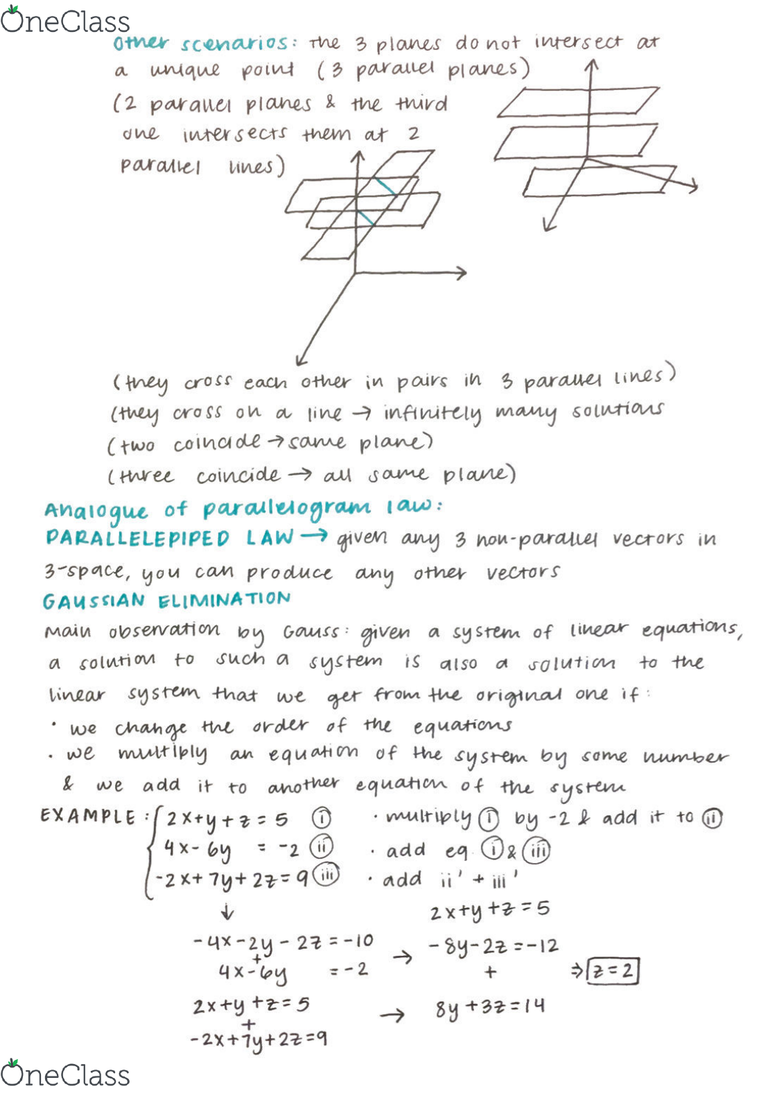 OneClass
Other scenarios: the 3 planes do not intersect at
a unique point (3 parallel planes)
(2 parallel planes & the third
one intersects them at 2
parallel lines)
(they cross each other in pairs in 3 parallel lines)
(they cross on a line → infinitely many solutions
(two coincide → same plane)
(three coincide → all same plane)
Analogue of parallelogram law:
PARALLELEPIPED LAW → given any 3 non-parallel vectors in
3-space, you can produce any other vectors
GAUSSIAN ELIMINATION
Main observation by Gauss: given a system of linear equations,
a solution to such a system is also a solution to the
linear system that we get from the original one if:
· we change the order of the equations
· we multiply an equation of the system by some number
& we add it to another equation of the system
EXAMPLE: { 2x+y+z=5 (i) · multiply (i) by -2 & add it to (ii)
4x-6y = -2 (ii) · add eq (i) & (iii)
-2x+7y+2z=9 (iii) · add ii' + iii'
↓ 2x+y+z=5
-4x-2y-2z=-10 → -8y-2z=-12
+ + ⇒ z=2
4x-6y =-2
2x+y+z=5 → 8y+3z=14
+
-2x+7y+2z=9
OneClass